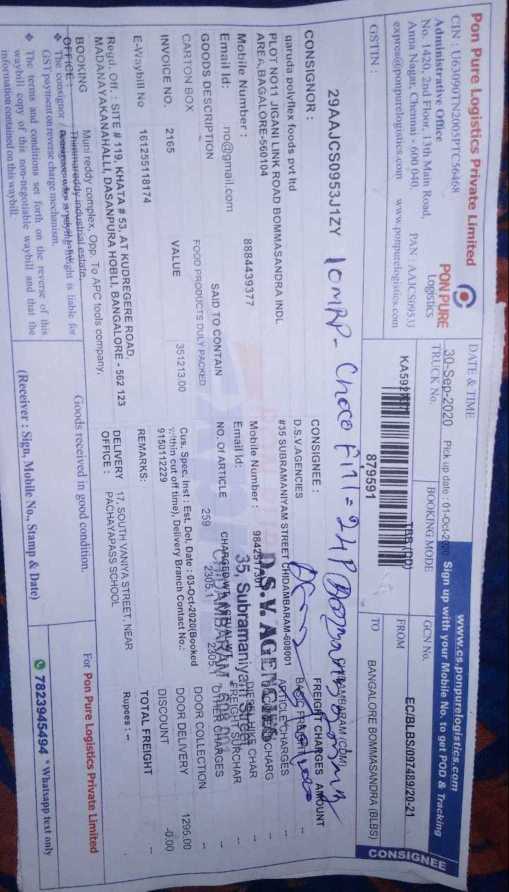 Pon Pure Logistics Private Limited
CIN : U63090TN2005PTC56468
Administrative Office
No. 1420, 2nd Floor, 13th Main Road,
Anna Nagar, Chennai - 600 040. PAN : AAJCS0953J
express@ponpurelogistics.com www.ponpurelogistics.com
PON PURE
Logistics
www.cs.ponpurelogistics.com
Sign up with your Mobile No. to set POD & Tracking
CONSIGNEE
DATE & TIME
30-Sep-2020 Pick up date : 01-Oct-2020
TRUCK No.
BOOKING MODE
GCN No.
EC/BLBS/097489/20-21
879591
FROM
BANGALORE BOMMASANDRA (BLBS)
TO
GSTIN :
29AAJCS0953J1ZY
10MRP - Choco Fill = 24P
CONSIGNOR :
garuda polyflex foods pvt ltd
PLOT NO11 JIGANI LINK ROAD BOMMASANDRA INDL
AREA,BAGALORE-560104
Mobile Number : 8884439377
Email Id: no@gmail.com
CONSIGNEE :
D.S.V AGENCIES
#35 SUBRAMANIYAN STREET CHIDAMBARAM-608001
Mobile Number :
Email Id:
D.S.V AGENCIES
35, Subramaniyan Street
CHIDAMBARAM
FREIGHT CHARGES AMOUNT
ARTICLE CHARGES
DOOR COLLECTION --
DOOR DELIVERY 1295.00
DISCOUNT -0.00
TOTAL FREIGHT --
Rupees : --
GOODS DESCRIPTION SAID TO CONTAIN NO. Of ARTICLE
CARTON BOX FOOD PRODUCTS DULY PACKED 259
2305.1
INVOICE NO. 2165 VALUE 351213.00
Cus. Spec. Inst : Est. Del. Date : 03-Oct-2020(Booked
within cut off time), Delivery Branch Contact No.:
9150112229
E-Waybill No 161255118174
REMARKS:
Regd. Off. : SITE # 119, KHATA # 53, AT KUDREGERE ROAD,
MADANAYAKANAHALLI, DASANPURA HOBLI, BANGALORE - 562 123
BOOKING OFFICE : Muni reddy complex, Opp. To APC tools company,
Thimmareddy industrial estate,
DELIVERY OFFICE : 17, SOUTH VANIYA STREET, NEAR
PACHAYAPASS SCHOOL
❖ The consignor / freight is liable for
GST payment on reverse charge mechanism.
❖ The terms and conditions set forth on the reverse of this
waybill copy of this non-negotiable waybill and that the
information contained on this waybill.
Goods received in good condition.
(Receiver : Sign, Mobile No., Stamp & Date)
For Pon Pure Logistics Private Limited
7823945494 * Whatsapp text only